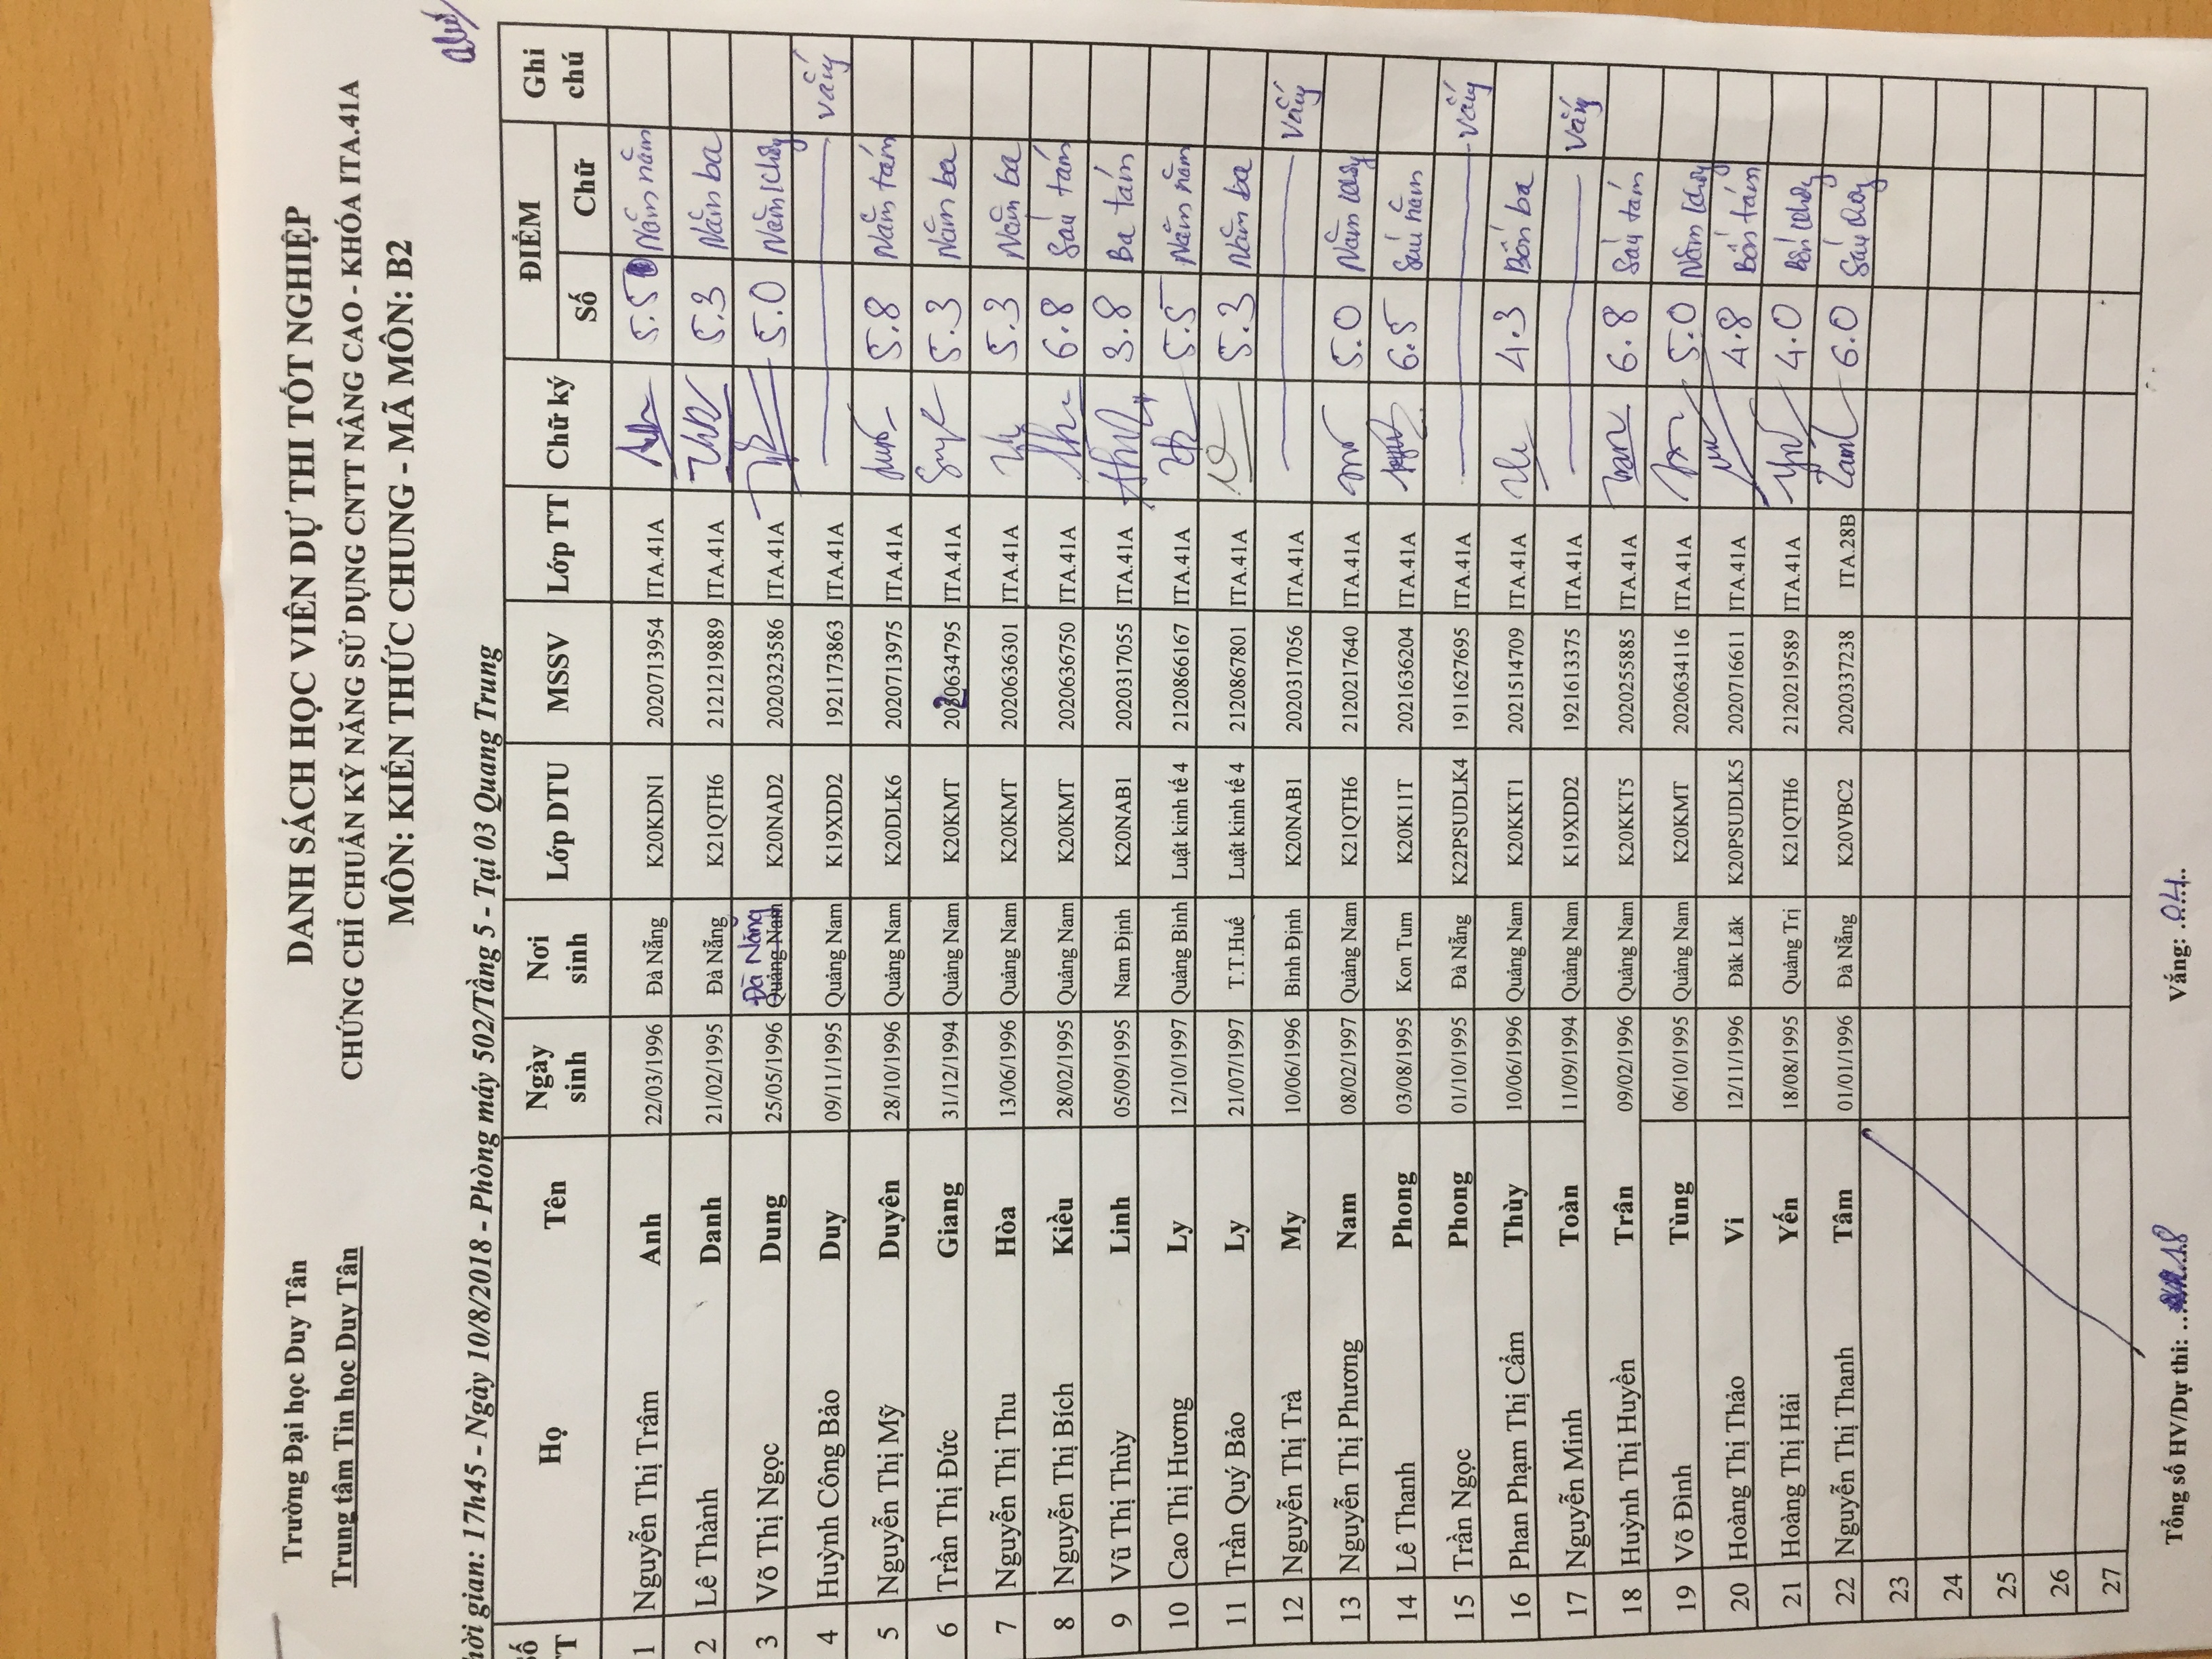 Trường Đại học Duy Tân
Trung tâm Tin học Duy Tân
DANH SÁCH HỌC VIÊN DỰ THI TỐT NGHIỆP
CHỨNG CHỈ CHUẨN KỸ NĂNG SỬ DỤNG CNTT NÂNG CAO - KHÓA ITA.41A
MÔN: KIẾN THỨC CHUNG - MÃ MÔN: B2
hời gian: 17h45 - Ngày 10/8/2018 - Phòng máy 502/Tầng 5 - Tại 03 Quang Trung
Số TT Họ Tên Ngày sinh Nơi sinh Lớp DTU MSSV Lớp TT Chữ ký ĐIỂM Số Chữ Ghi chú
1 Nguyễn Thị Trâm Anh 22/03/1996 Đà Nẵng K20KDN1 2020713954 ITA.41A 5.5 Năm năm
2 Lê Thành Danh 21/02/1995 Đà Nẵng K21QTH6 2121219889 ITA.41A 5.3 Năm ba
3 Võ Thị Ngọc Dung 25/05/1996 Đà Nẵng Quảng Nam K20NAD2 2020323586 ITA.41A 5.0 Năm không
4 Huỳnh Công Bảo Duy 09/11/1995 Quảng Nam K19XDD2 1921173863 ITA.41A vắng
5 Nguyễn Thị Mỹ Duyên 28/10/1996 Quảng Nam K20DLK6 2020713975 ITA.41A 5.8 Năm tám
6 Trần Thị Đức Giang 31/12/1994 Quảng Nam K20KMT 2020634795 ITA.41A 5.3 Năm ba
7 Nguyễn Thị Thu Hòa 13/06/1996 Quảng Nam K20KMT 2020636301 ITA.41A 5.3 Năm ba
8 Nguyễn Thị Bích Kiều 28/02/1995 Quảng Nam K20KMT 2020636750 ITA.41A 6.8 Sáu tám
9 Vũ Thị Thùy Linh 05/09/1995 Nam Định K20NAB1 2020317055 ITA.41A 3.8 Ba tám
10 Cao Thị Hương Ly 12/10/1997 Quảng Bình Luật kinh tế 4 2120866167 ITA.41A 5.5 Năm năm
11 Trần Quý Bảo Ly 21/07/1997 T.T.Huế Luật kinh tế 4 2120867801 ITA.41A 5.3 Năm ba
12 Nguyễn Thị Trà My 10/06/1996 Bình Định K20NAB1 2020317056 ITA.41A vắng
13 Nguyễn Thị Phương Nam 08/02/1997 Quảng Nam K21QTH6 2120217640 ITA.41A 5.0 Năm không
14 Lê Thanh Phong 03/08/1995 Kon Tum K20K11T 2021636204 ITA.41A 6.5 Sáu năm
15 Trần Ngọc Phong 01/10/1995 Đà Nẵng K22PSUDLK4 1911627695 ITA.41A vắng
16 Phan Phạm Thị Cẩm Thùy 10/06/1996 Quảng Nam K20KKT1 2021514709 ITA.41A 4.3 Bốn ba
17 Nguyễn Minh Toàn 11/09/1994 Quảng Nam K19XDD2 1921613375 ITA.41A vắng
18 Huỳnh Thị Huyền Trân 09/02/1996 Quảng Nam K20KKT5 2020255885 ITA.41A 6.8 Sáu tám
19 Võ Đình Tùng 06/10/1995 Quảng Nam K20KMT 2020634116 ITA.41A 5.0 Năm không
20 Hoàng Thị Thảo Vi 12/11/1996 Đăk Lăk K20PSUDLK5 2020716611 ITA.41A 4.8 Bốn tám
21 Hoàng Thị Hải Yến 18/08/1995 Quảng Trị K21QTH6 2120219589 ITA.41A 4.0 Bốn không
22 Nguyễn Thị Thanh Tâm 01/01/1996 Đà Nẵng K20VBC2 2020337238 ITA.28B Tâm 6.0 Sáu không
23
24
25
26
27
Tổng số HV/Dự thi: ...18 Vắng: .04..